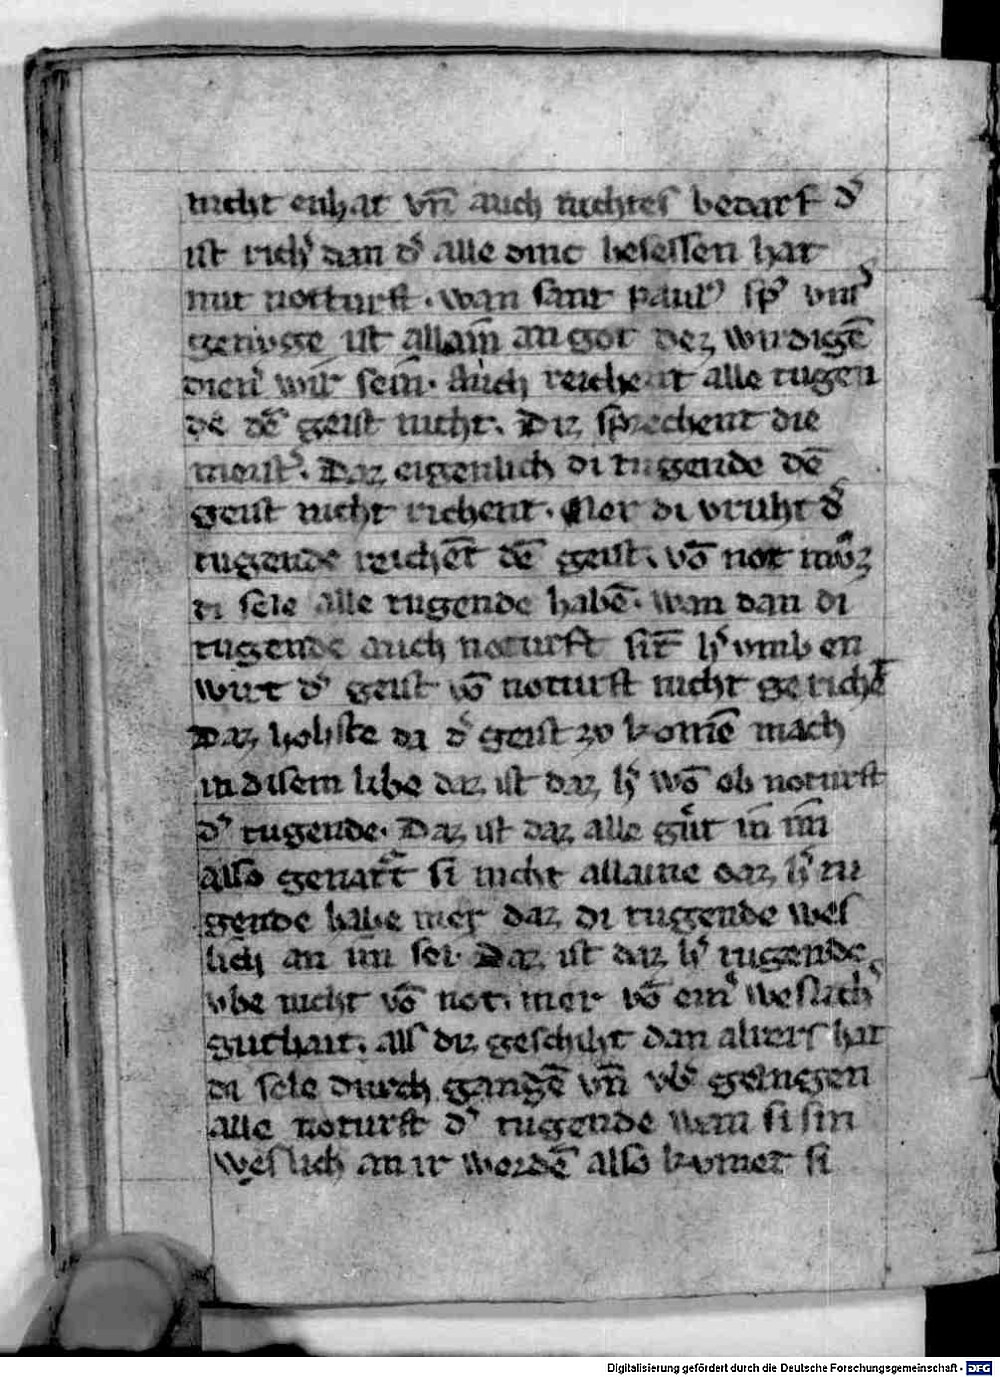 nicht enhat vn̄ auch nichtes bedarf d͛
ist rich͛ dan d͛ alle dinc besessen hat
mit notturft. wan sant paul⁹ sp͛ vnſ͛
genvge ist allain̄ an got dez wirdigē
dien͛ wir sein̄. Auch reichent alle tugen
de dē geist nicht. Diz sprechent die
meist͛. Daz eigenlich di tugende dē
geist nicht richent. Mer di vruht d͛
tugende reichēt dē geist. vō not mvͦz
di sele alle tugende habē. wan dan di
tugende auch noturft sīt h͛vmb en
wirt d͛ geist vō noturft nicht gerichēt
Daz hohste da d͛ geist zv komē mach
in disem libe daz ist daz h͛ wō ob noturft
d͛ tugende. Daz ist daz alle guͤt in im
also genatͤt si nicht allaine daz h͛ tu
gende habe mer daz di tuggende wes
lich an im sei. Daz ist daz h͛ tugende
vbe nicht vō not. mer vō ein͛ weslich͛
guthait. als diz geschiht dan alrerst hat
di sele durch gangē vn̄ vb͛ gesingen
alle noturft d͛ tugende wan si sin
weslich an ir wordē also kvmet si
Digitalisierung gefördert durch die Deutsche Forschungsgemeinschaft - DFG